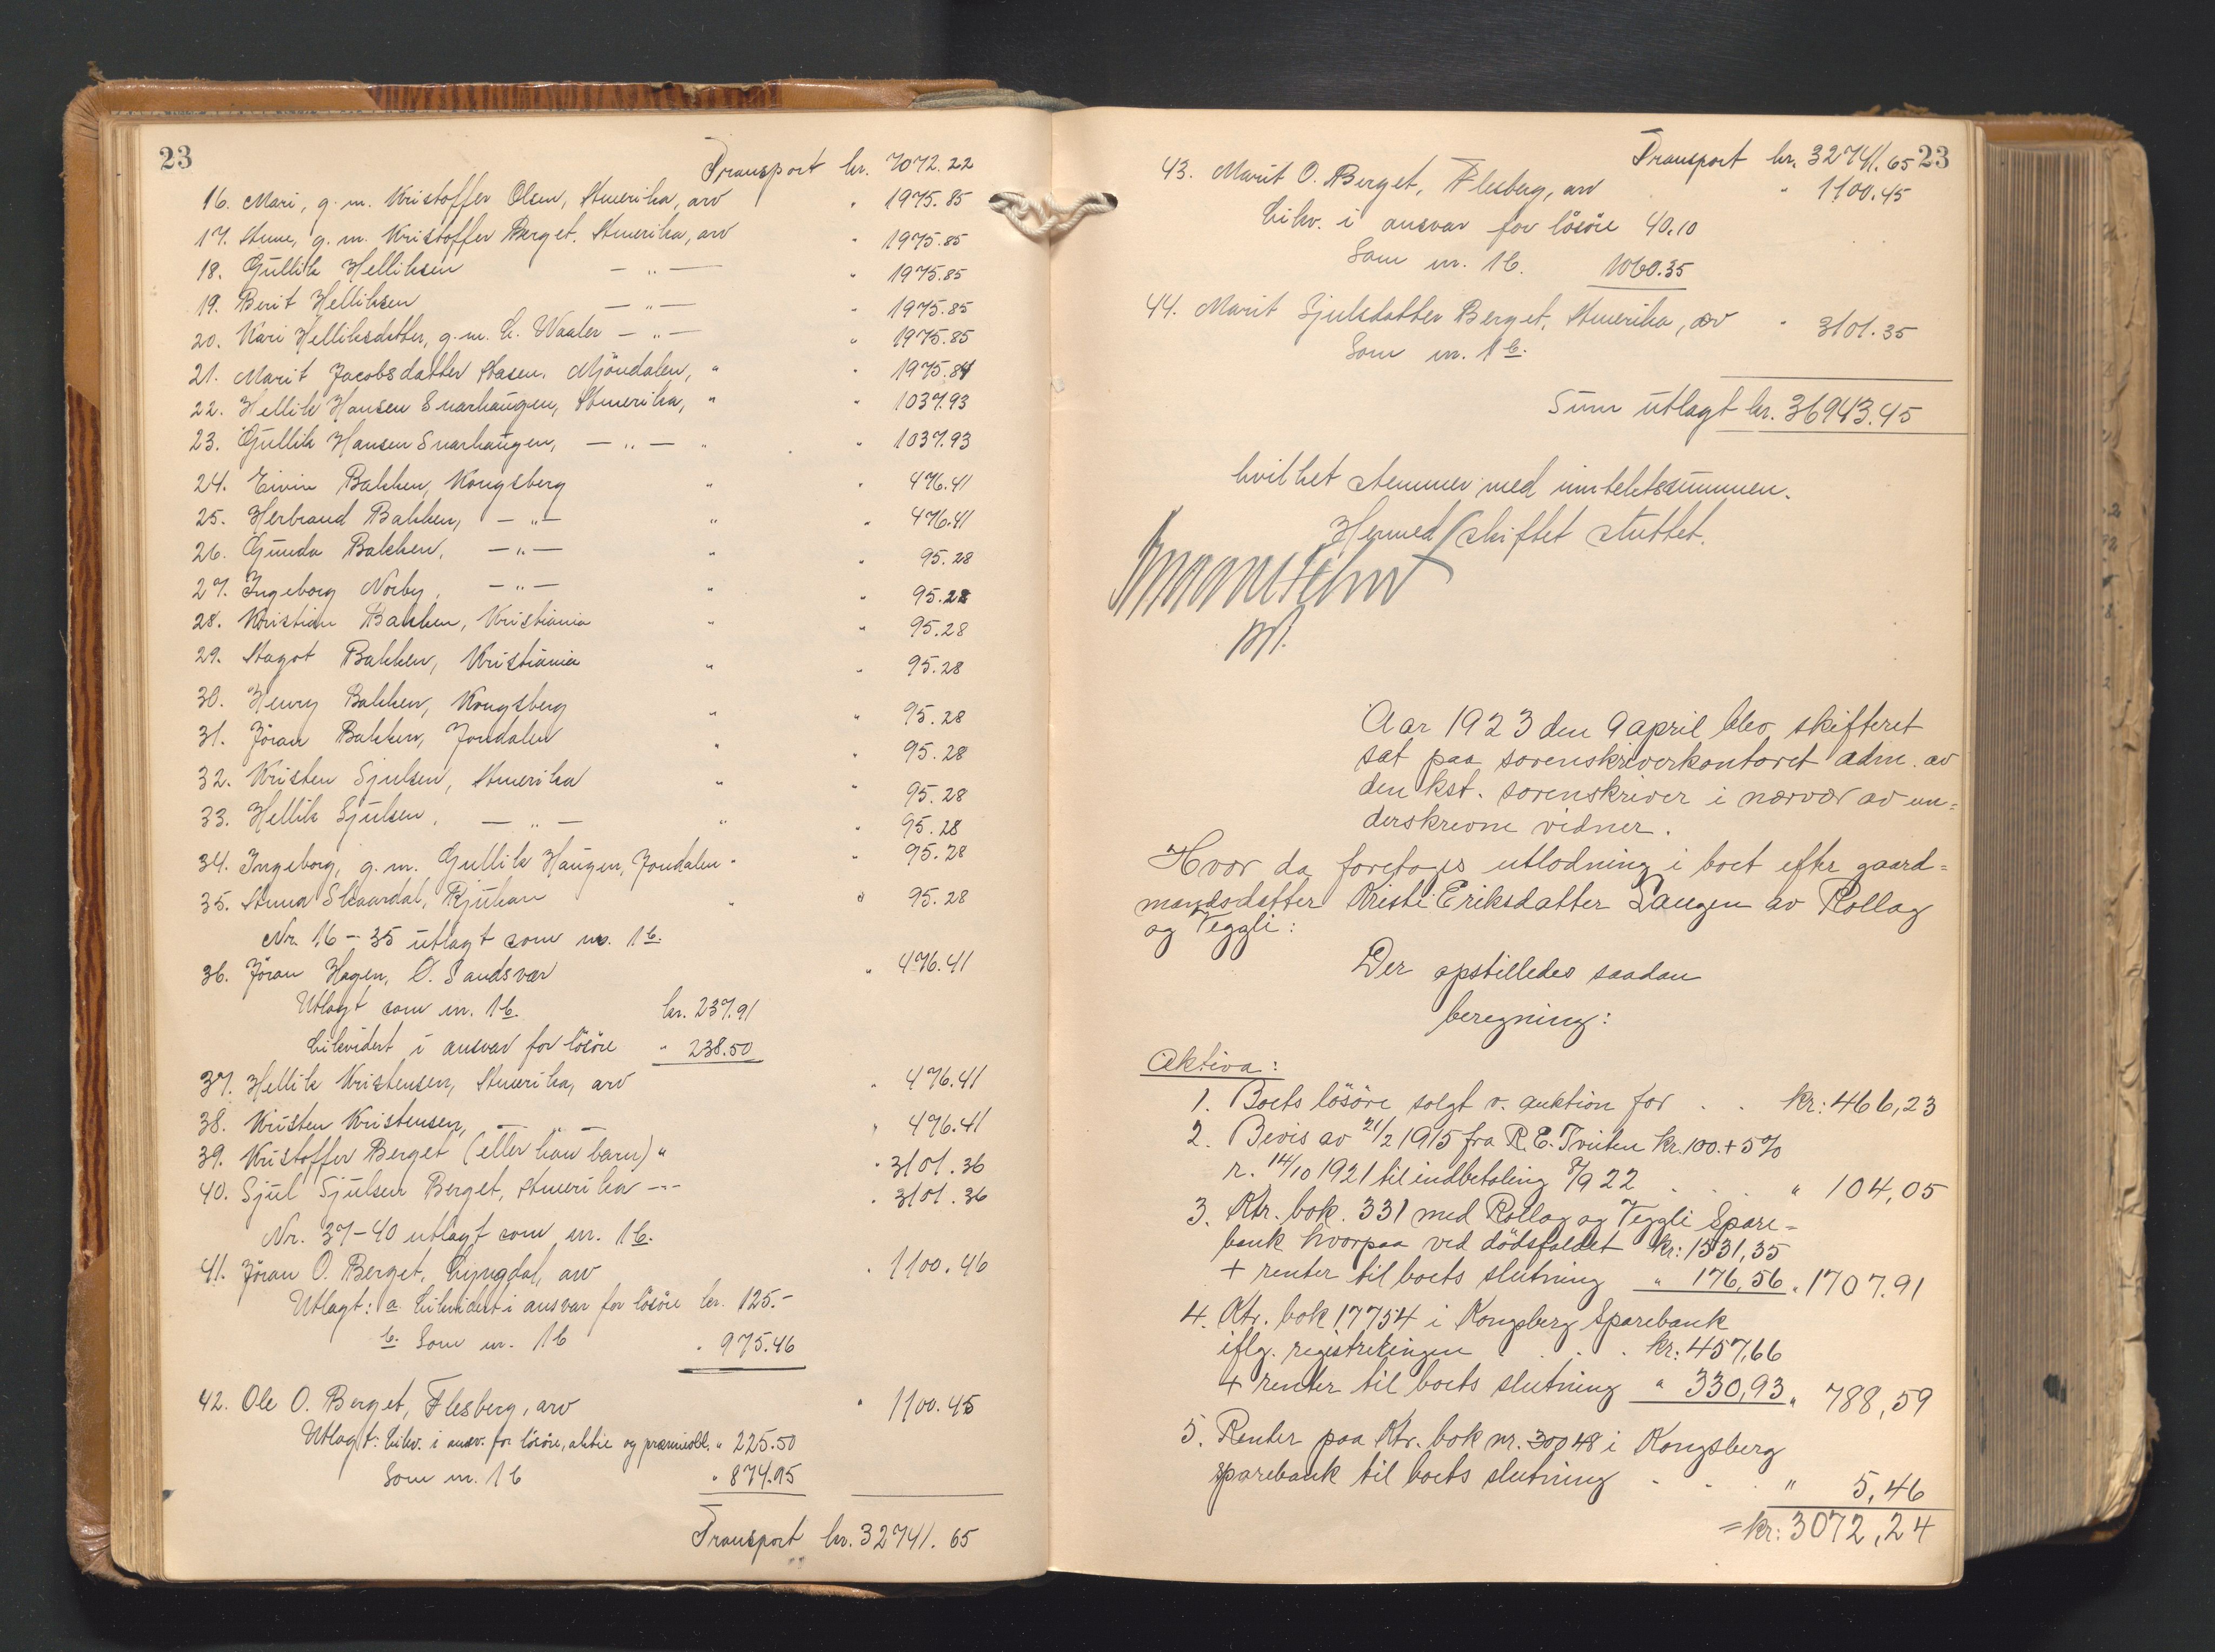 23
Transport kr. 7072.22
16. Mari, g. m. Kristoffer Olsen, Amerika, arv " 1975.85
17. Anne, g. m. Kristoffer Berget. Amerika, arv " 1975.85
18. Gullik Helliksen — " — " 1975.85
19. Berit Helliksen — " — " 1975.85
20. Kari Helliksdatter, g. m. C. Waaler — " — " 1975.85
21. Marit Jacobsdatter Aasen. Mjöndalen, " " 1975.84
22. Hellik Hansen Snarhaugen, Amerika, " " 1037.93
23. Gullik Hansen Snarhaugen, — " — " " 1037.93
24. Eivin Bakken, Kongsberg " " 476.41
25. Herbrand Bakken, — " — " " 476.41
26. Gunda Bakken, — " — " " 95.28
27. Ingeborg Norby, — " — " " 95.28
28. Kristian Bakken, Kristiania " " 95.28
29. Aagot Bakken, Kristiania " " 95.28
30. Henry Bakken, Kongsberg " " 95.28
31. Jöran Bakken, Jondalen " " 95.28
32. Kristen Sjulsen, Amerika " " 95.28
33. Hellik Sjulsen, — " — " " 95.28
34. Ingeborg, g. m. Gullik Haugen, Jondalen " " 95.28
35. Anna Skaardal, Rjukan " " 95.28
Nr. 16 - 35 utlagt som nr. 1 b.
36. Jöran Hagen, Ö. Sandsvær " 476.41
Utlagt som nr. 1 b. kr. 237.91
Likvidert i ansvar for lösöre " 238.50
37. Hellik Kristensen, Amerika, arv " 476.41
38. Kristen Kristensen, — " — " 476.41
39. Kristoffer Berget (eller hans barn) " " 3101.36
40. Sjul Sjulsen Berget, Amerika - " - " 3101.36
Nr. 37-40 utlagt som nr. 1 b.
41. Jöran O. Berget, Lyngdal, arv " 1100.46
Utlagt: a. Likvidert i ansvar for lösöre kr. 125.-
b. Som nr. 1 b " 975.46
42. Ole O. Berget, Flesberg, arv " 1100.45
Utlagt: Likv. i ansv. for lösöre, aktie og præmieobl. " 225.50
Som nr. 1 b " 874.95
Transport kr. 32741.65
Transport kr. 32741.65 23
43. Marit O. Berget, Flesberg, arv " 1100.45
Likv. i ansvar for lösöre 40.10
Som nr. 1 b. 1060.35
44. Marit Sjulsdatter Berget, Amerika, arv " 3101.35
Som nr. 1 b.
Sum utlagt kr. 36943.45
hvilket stemmer med inntektssummen.
Hermed skiftet sluttet.
Aar 1923 den 9 april blev skifteret
sat paa sorenskriverkontoret adm. av
den kst. sorenskriver i nærvær av un=
derskrevne vidner.
Hvor da foretoges utlodning i boet efter gaard=
mandsdatter Kristi Eriksdatter Laugen av Rollag
og Veggli:
Der opstilledes saadan
beregning:
Aktiva:
1. Boets lösöre solgt v. auktion for . . kr: 466,23
2. Bevis av 21/2 1915 fra R. E. Tvieten kr. 100. + 5%
r. 14/10 1921 til indbetaling 7/9 22 . . . " 104,05
3. Ktr. bok. 331 med Rollag og Veggli Spare=
bank hvorpaa ved dödsfaldet kr: 1531,35
+ renter til boets slutning " 176,56 " 1707.91
4. Ktr. bok 17754 i Kongsberg Sparebank
iflg. registreringen . . . kr: 457,66
+ renter til boets slutning " 330,93 " 788,59
5. Renter paa Ktr. bok nr. 30048 i Kongsberg
sparebank til boets slutning . . . " 5,46
= kr: 3072,24